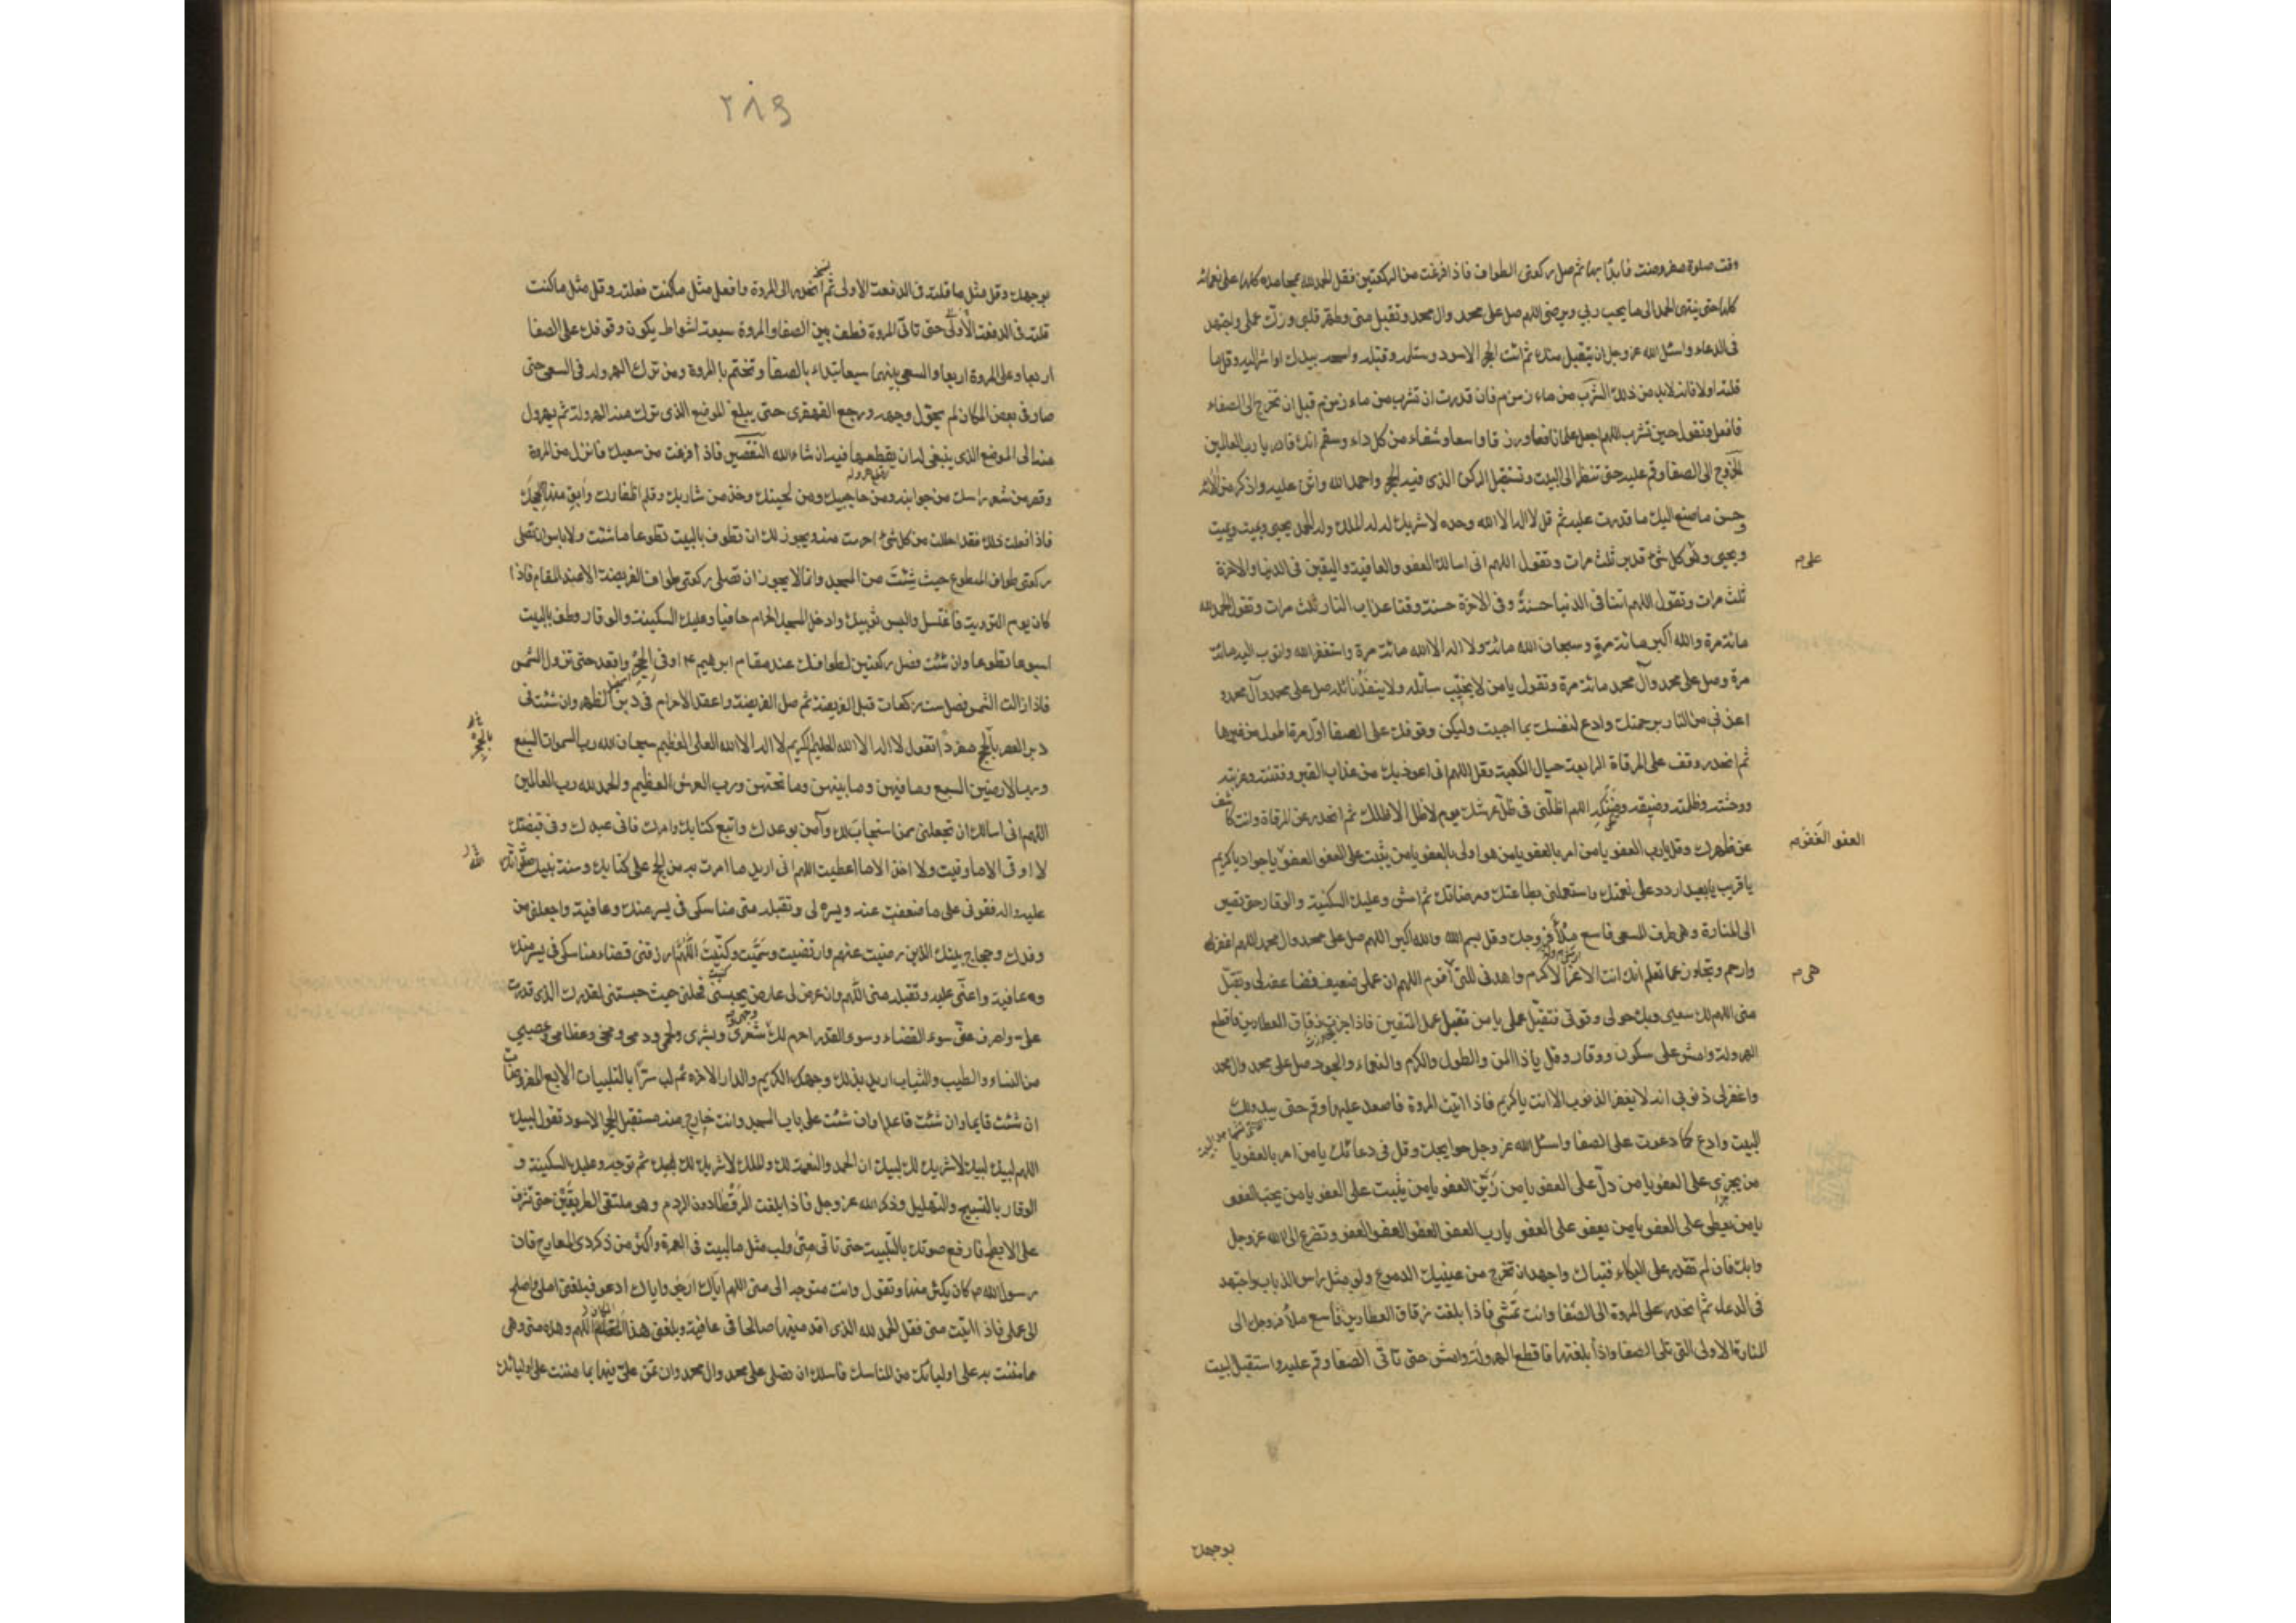 وقت صلوة مفروضة فابدأ بها ثم صل ركعتي الطواف فاذا فرغت من الركعتين فقل الحمد لله بمحامده كلها على نعمائه
كلها حتى ينتهي الحمد الى ما يحب ربي ويرضى اللهم صل على محمد وال محمد وتقبل مني وطهر قلبي وزك عملي واجتهد
في الدعاء واسئل الله عز وجل ان يتقبل منك ثم ائت الحجر الاسود وستلمه وقبله وامسحه بيدك او اشر اليه وقل ما
قلته اولا فانه لا بد من ذلك الشرب من ماء زمزم فان قدرت ان تشرب من ماء زمزم قبل ان تخرج الى الصفاء
فافعل وتقول حين تشرب اللهم اجعله علما نافعا ورزقا واسعا وشفاء من كل داء وسقم انك قادر يا رب العالمين
الخروج الى الصفا وقم عليه حتى تنظر الى البيت وتستقبل الركن الذي فيه الحجر واحمد الله واثن عليه واذكر من الائه
وحسن ما صنع اليك ما قدرت عليه ثم قل لا اله الا الله وحده لا شريك له له الملك وله الحمد يحيي ويميت ويميت
ويحيي وهو كل شئ قدير ثلث مرات وتقول اللهم اني اسالك العفو والعافية واليقين في الدنيا والاخرة
على م
ثلث مرات وتقول اللهم اتنا في الدنيا حسنة وفي الاخرة حسنة وقنا عذاب النار ثلث مرات وتقول الحمد لله
مائة مرة والله اكبر مائة مرة وسبحان الله مائة ولا اله الا الله مائة مرة واستغفر الله واتوب اليه مائة
مرة وصل على محمد وآل محمد مائة مرة وتقول يا من لا يخيب سائله ولا ينفد نائله صل على محمد وآل محمد و
اعذني من النار برحمتك وادع لنفسك بما احببت وليكن وقوفك على الصفا اول مرة اطول من غيرها
ثم انحدر وقف على المرقاة الرابعة حيال الكعبة وقل اللهم اني اعوذ بك من عذاب القبر وفتنته وغربته
ووحشته وظلمته وضيقه وضنكه اللهم اظلني في ظل عرشك يوم لا ظل الا ظلك ثم انحدر عن المرقاة وانت كاشف
عن ظهرك وقل يا رب العفو يا من امر بالعفو يا من هو اولى بالعفو يا من يثيب على العفو العفو يا جواد يا كريم
العفو العفو م
يا قريب يا بعيد اردد علي نعمتك واستعملني بطاعتك ومرضاتك ثم امش وعليك السكينة والوقار حتى تصير
الى المنارة وهي طرف المسعى فاسع ملأ فروجك وقل بسم الله والله اكبر اللهم صل على محمد وال محمد اللهم اغفر
وارحم وتجاوز عما تعلم انك انت الاعز الاكرم واهدني للتي اقوم اللهم ان عملي ضعيف فضاعفه لي وتقبل
هي م
مني اللهم لك سعيي وبك حولي وقوتي فتقبل عملي يا من تقبل عمل المتقين فاذا جزت زقاق العطارين فاقطع
الهرولة وامش على سكون ووقار وقل يا ذا المن والطول والكرم والنعماء والجود صل على محمد وال محمد
واغفر لي ذنوبي انه لا يغفر الذنوب الا انت يا كريم فاذا اتيت المروة فاصعد عليها وقم حتى يبدو لك
البيت وادع كما دعوت على الصفا واسئل الله عز وجل حوايجك وقل في دعائك يا من امر بالعفو يا
من يجزي على العفو يا من دل على العفو يا من زين العفو يا من يثيب على العفو يا من يحب العفو
يا من يعطي على العفو يا من يعفو على العفو يا رب العفو العفو العفو العفو وتضرع الى الله عز وجل
وابك فان لم تقدر على البكاء فتباك واجهد ان تخرج من عينيك الدموع ولو مثل راس الذباب واجتهد
في الدعاء ثم انحدر على المروة الى الصفا وانت تمشي فاذا بلغت زقاق العطارين فاسع ملأ فروجك الى
المنارة الاولى التي تلي الصفا واذا بلغتها فاقطع الهرولة وامش حتى تاتي الصفا وقم عليه واستقبل البيت
بوجهك
٢٨٩
بوجهك وقل مثل ما قلته في الدفعة الاولى ثم انحدر الى المروة وافعل مثل ما كنت فعلته وقل مثل ما كنت
قلته في الدفعة الاولى حتى تاتي المروة فطف بين الصفا والمروة سبعة اشواط يكون وقوفك على الصفا
اربعا وعلى المروة اربعا والسعي بينهما سبعا تبداء بالصفا وتختم بالمروة ومن ترك الهرولة في السعي حتى
صار في بعض المكان لم يحول وجهه ورجع القهقرى حتى يبلغ الموضع الذي ترك منه الهرولة ثم يهرول
منه الى الموضع الذي ينبغي له ان يقطعها فيه ان شاء الله التقصير فاذا فرغت من سعيك فانزل من المروة
وقصر من شعر راسك من جوانبه ومن حاجبيك ومن لحيتك وخذ من شاربك وقلم اظفارك وابق منها لحجك
فاذا فعلت ذلك فقد احللت من كل شئ احرمت منه ويجوز لك ان تطوف بالبيت تطوعا ما شئت ولا باس ان تصلي
ركعتي طواف التطوع حيث شئت من المسجد وانما لا يجوز ان تصلي ركعتي طواف الفريضة الا عند المقام فاذا
كان يوم التروية فاغتسل والبس ثوبيك وادخل المسجد الحرام حافيا وعليك السكينة والوقار وطف بالبيت
اسبوعا تطوعا وان شئت فصل ركعتين لطوافك عند مقام ابرهيم ع او في الحجر واقعد حتى تزول الشمس
فاذا زالت الشمس فصل ست ركعات قبل الفريضة ثم صل الفريضة واعقد الاحرام في دبر الظهر وان شئت في
دبر العصر بالحج مفردا تقول لا اله الا الله الحليم الكريم لا اله الا الله العلي العظيم سبحان الله رب السموات السبع
ورب الارضين السبع وما فيهن وما بينهن وما تحتهن ورب العرش العظيم والحمد لله رب العالمين
اللهم اني اسالك ان تجعلني ممن استجاب لك وآمن بوعدك واتبع كتابك وامرك فاني عبدك وفي قبضتك
لا اوقى الا ما وقيت ولا اخذ الا ما اعطيت اللهم اني اريد ما امرت به من الحج على كتابك وسنة نبيك صلواتك
عليه واله فقوني على ما ضعفت عنه ويسره لي وتقبله مني مناسكي في يسر منك وعافية واجعلني من
وفدك وحجاج بيتك الذين رضيت عنهم وارتضيت وسميت وكتبت اللهم ارزقني قضاء مناسكي في يسر منك
وعافية واعني عليه وتقبله مني اللهم وان عرض لي عارض يحبسني فحلني حيث حبستني لقدرك الذي قدرت
علي واصرف عني سوء القضاء وسوء القدر احرم لك شعري وبشري ولحمي ودمي ومخي وعظامي وعصبي
من النساء والطيب والثياب اريد بذلك وجهك الكريم والدار الاخرة ثم لب سرا بالتلبيات الاربع المفروضات
ان شئت قايما وان شئت قاعدا وان شئت على باب المسجد وانت خارج منه مستقبل الحجر الاسود تقول لبيك
اللهم لبيك لبيك لا شريك لك لبيك ان الحمد والنعمة لك والملك لا شريك لك لبيك ثم توجه وعليك السكينة و
الوقار بالتسبيح والتهليل وذكر الله عز وجل فاذا بلغت الرقطا دون الردم وهو ملتقى الطريقين حتى تشرف
على الابطح فارفع صوتك بالتلبية حتى تاتي منى ولب مثل ما لبيت في العمرة واكثر من ذكر ذي المعارج فان
رسول الله ص كان يكثر منها وتقول وانت متوجه الى منى اللهم اياك ارجو واياك ادعو فبلغني املي واصلح
لي عملي فاذا اتيت منى فقل الحمد لله الذي اقدمنيها صالحا في عافية وبلغني هذا المكان اللهم وهذه منى وهي
مما مننت به على اوليائك من المناسك فاسئلك ان تصلي على محمد وال محمد وان تمن علي فيها بما مننت على اوليائك